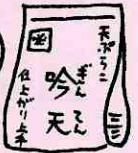 天ぷらこ
吟天
ぎんてん
仕上がり上手